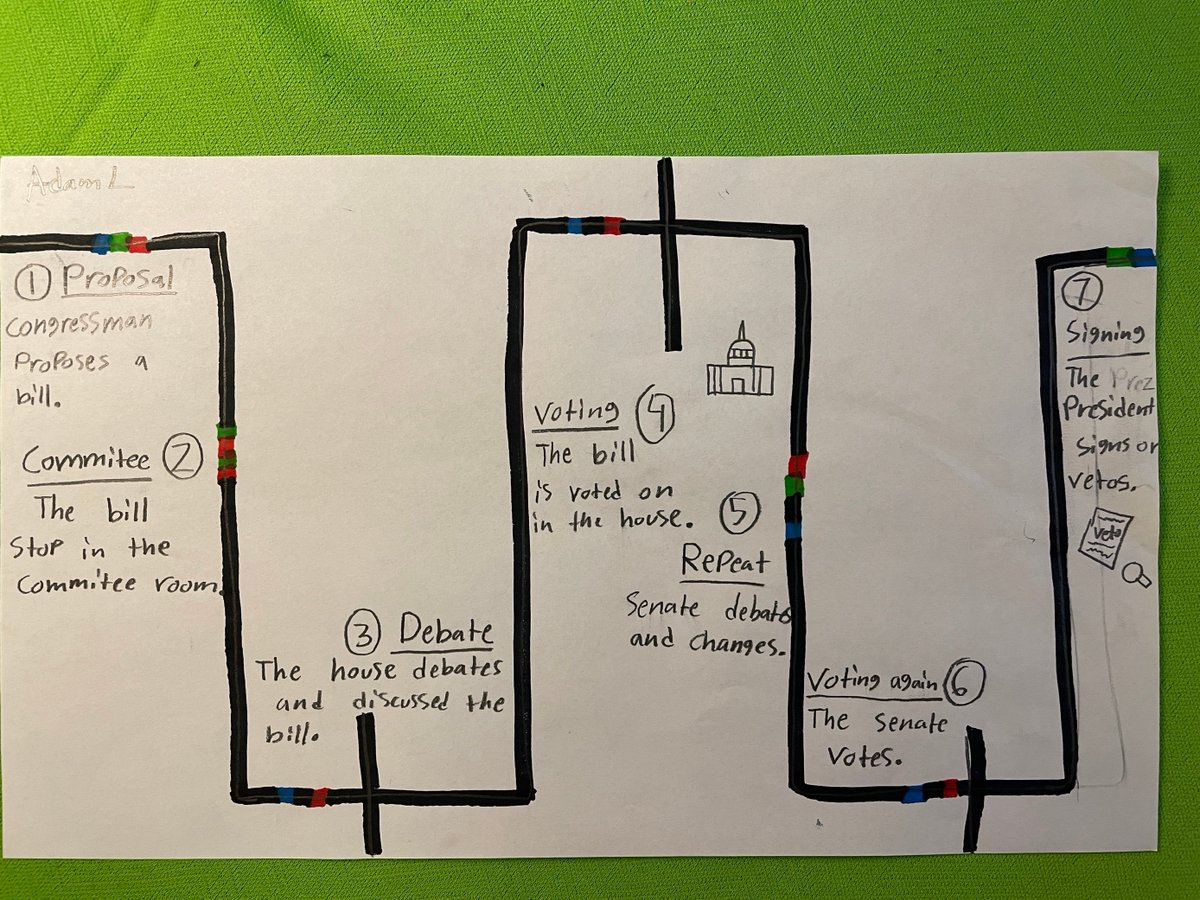 Adam L
① Proposal
Congressman
Proposes a
bill.
Commitee ②
The bill
Stop in the
Commitee room.
③ Debate
The house debates
and discussed the
bill.
Voting ④
The bill
is voted on
in the house.
⑤
Repeat
Senate debats
and changes.
Voting again ⑥
The senate
votes.
⑦
Signing
The Prez
President
signs or
vetos.
veto